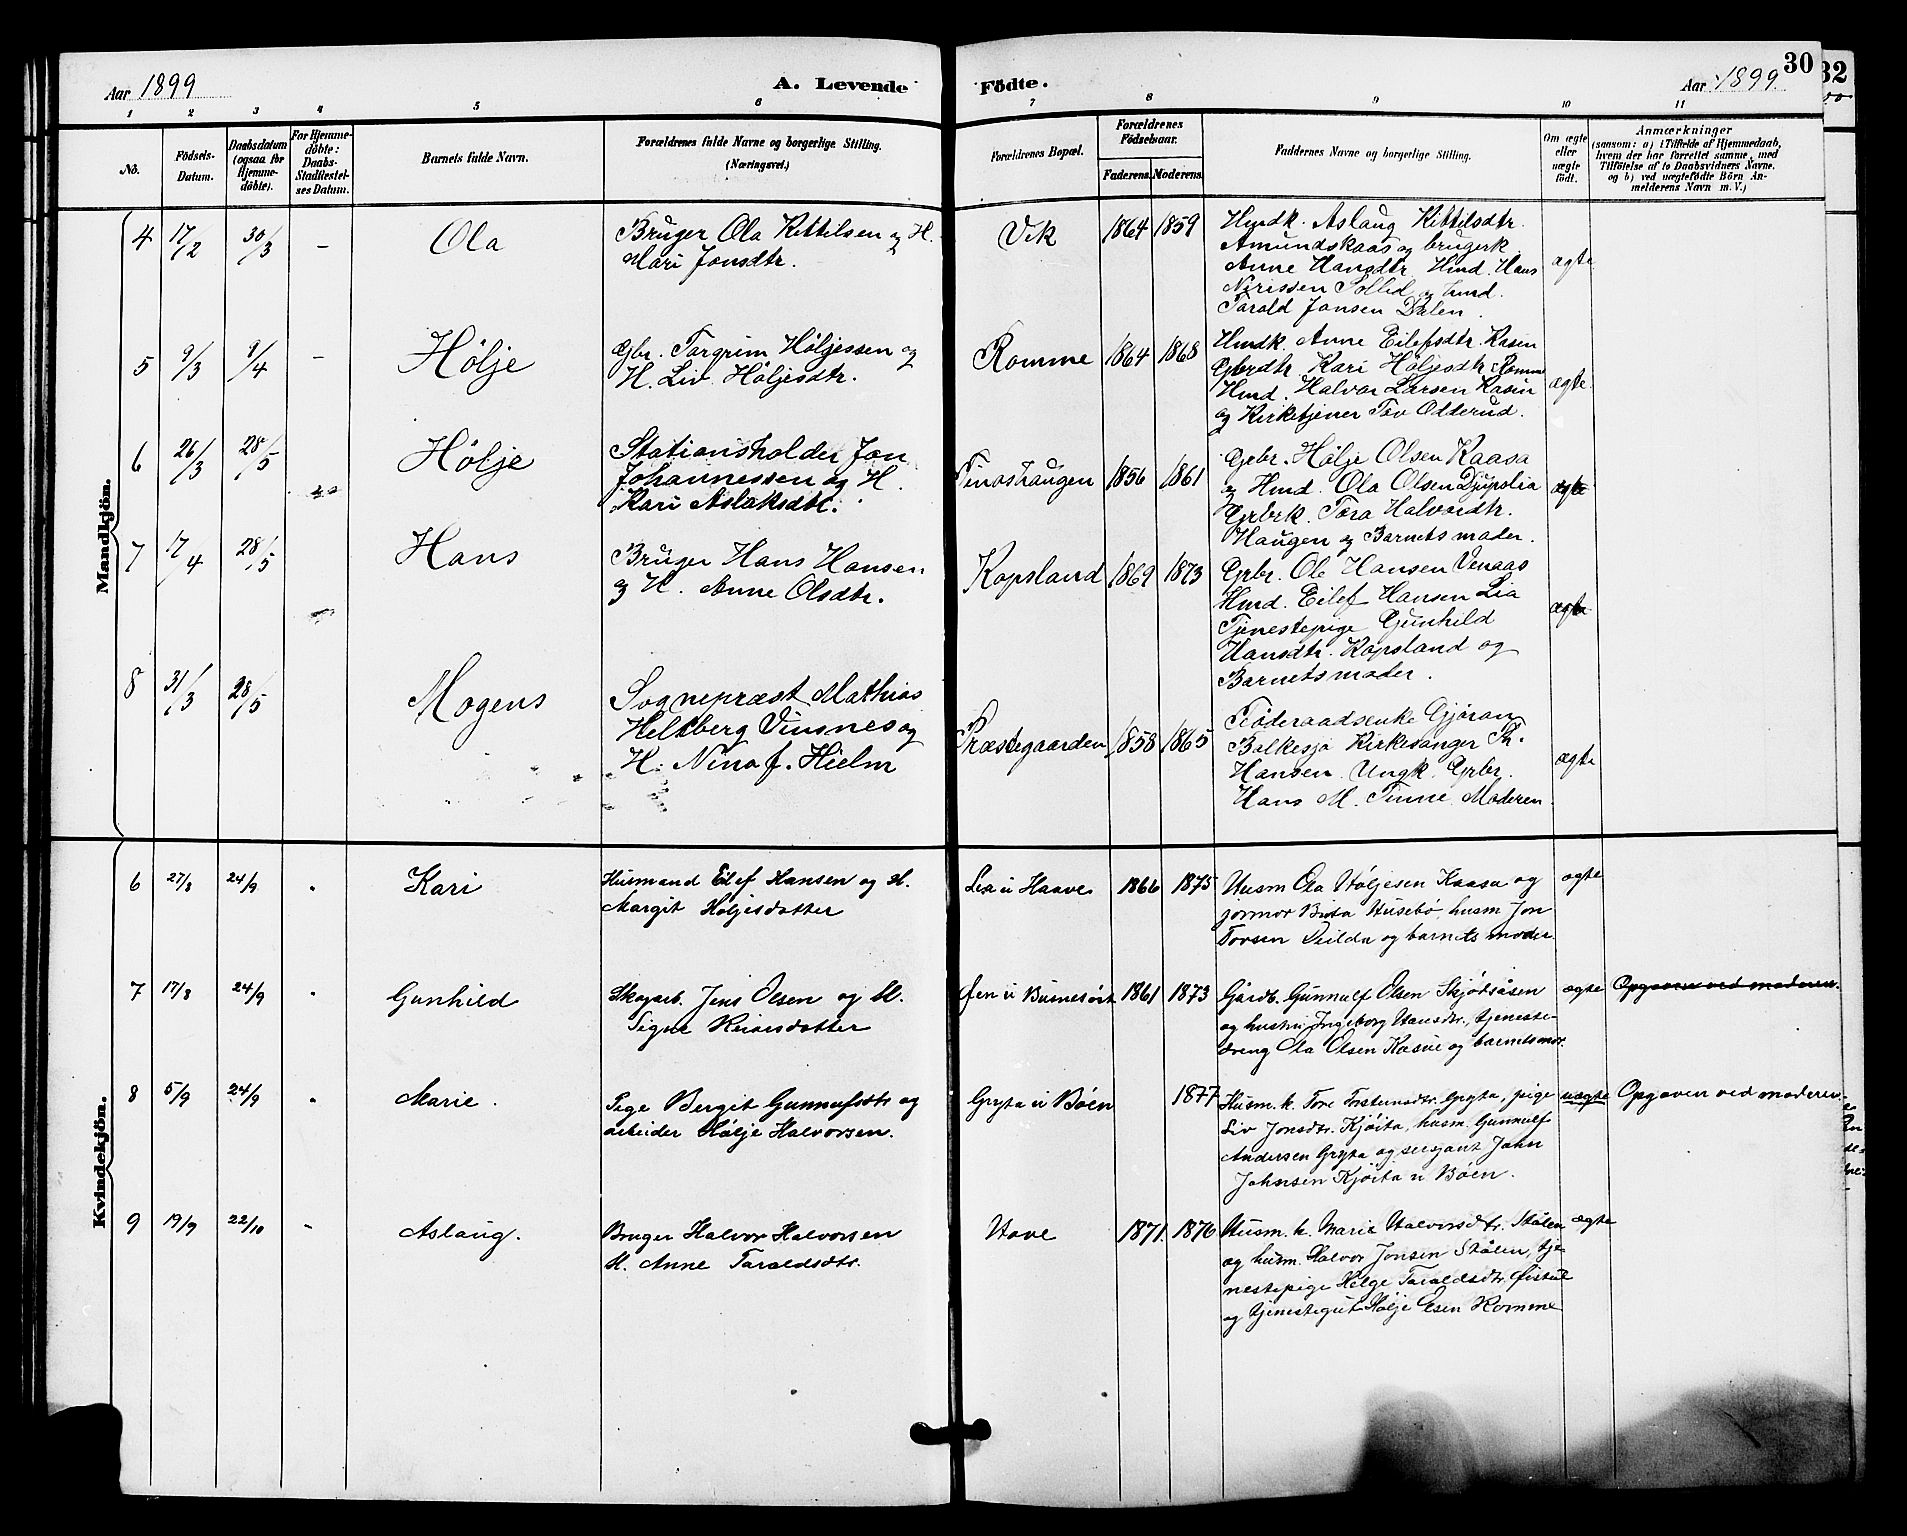 Aar 1899
A. Levende Födte.
Aar 1899
30
32
1 2 3 4 5 6 7 8 9 10 11
No.
Födsels-
Datum.
Daabsdatum
(ogsaa for
Hjemme-
döbte).
For Hjemme-
döbte:
Daabs-
Stadfæstel-
ses Datum.
Barnets fulde Navn.
Forældrenes fulde Navne og borgerlige Stilling.
(Næringsvei.)
Forældrenes Bopæl.
Forældrenes
Födselsaar.
Faderens. Moderens.
Faddernes Navne og borgerlige Stilling.
Om ægte
eller
uægte
födt.
Anmærkninger
(saasom: a) i Tilfælde af Hjemmedaab,
hvem der har forrettet samme, med
Tilföielse af to Daabsvidners Navne,
og b) ved uægtefödte Börn An-
melderens Navn m. V.)
Mandkjön.
4 17/2 30/3 - Ola
Bruger Ola Kittilsen og H.
Mari Jonsdtr.
Vik 1864 1859
Hmdk. Aslaug Kittilsdtr.
Amundskaas og brugerk.
Anne Hansdtr. Hmd. Hans
Nirissen Sollid og hmd.
Tarald Jonsen Dalen.
ægte
5 9/3 9/4 - Hölje
Gbr. Torgrim Höljessen og
H. Liv Höljesdtr.
Romme 1864 1868
Hmdk. Anne Eilefsdtr. Kasin
Gbrdtr. Kari Höljesdtr. Romme
Hmd. Halvor Larsen Kasin
og Kirketjener Tov Odderud.
ægte
6 26/3 28/5 Hölje
Stationsholder Jon
Johannessen og H.
Kari Aslaksdtr.
Tinoshaugen 1856 1861
Grbr. Hölje Olsen Kaasa
og Hmd. Ola Olsen Djupslia
Grbrk. Tora Halvordtr.
Haugen og Barnets moder.
ægte
7 17/4 28/5 Hans
Bruger Hans Hansen
og H. Anne Olsdtr.
Kopsland 1869 1873
Grbr. Ole Hansen Venaas
Hmd. Eilef Hansen Lia
Tjenestepige Gunhild
Hansdtr. Kopsland og
Barnets moder.
ægte
8 31/3 28/5 Mogens
Sognepræst Mathias
Heltberg Vinsnes og
H. Nina f. Hielm
Præstegaarden 1858 1865
Föderaadsenke Gjöran
Bolkesjö Kirkesanger Th.
Hansen. Ungk. Grbr.
Hans M. Tinne. Moderen.
ægte
Kvindekjön.
6 27/8 24/9 " Kari
Husmand Eilef Hansen og H.
Margit Höljesdatter
Lia u Haave 1866 1875
Husm. Ola Höljesen Kaasa og
jormor Birta Husebö, husm Jon
Torsen Kvilda og barnets moder.
ægte
7 17/8 24/9 " Gunhild
Skogarb. Jens Olsen og H.
Signe Reiarsdatter
1861 1873
Gårdb. Gunnulf Olsen Skjödsåsen
og hustru Ingeborg Hansdtr., tjeneste-
dreng Ola Olsen Kasin og barnets mor.
ægte Opgaven ved moderen.
8 5/9 24/9 " Marie.
Pige Bergit Gunnufsdtr og
arbeider Hölje Halvorsen.
Gryta u Böen 1877
Husm. k. Tore Torsteinsdtr. Gryta, pige
Liv Jonsdtr. Kjöita, husm. Gunnulf
Andersen Gryta og sersjant John
Johnsen Kjöita u Böen.
uægte Opgaven ved moderen.
9 19/9 22/10 - Aslaug.
Bruger Halvor Halvorsen
H. Anne Taraldsdtr.
Hove 1871. 1876
Husm. k. Marie Halvorsdtr. Stölen
og husm. Halvor Jonsen Stölen, tje-
nestepige Helge Taraldsdtr. Öistul
og tjenestegut Hölje Olsen Romme
ægte